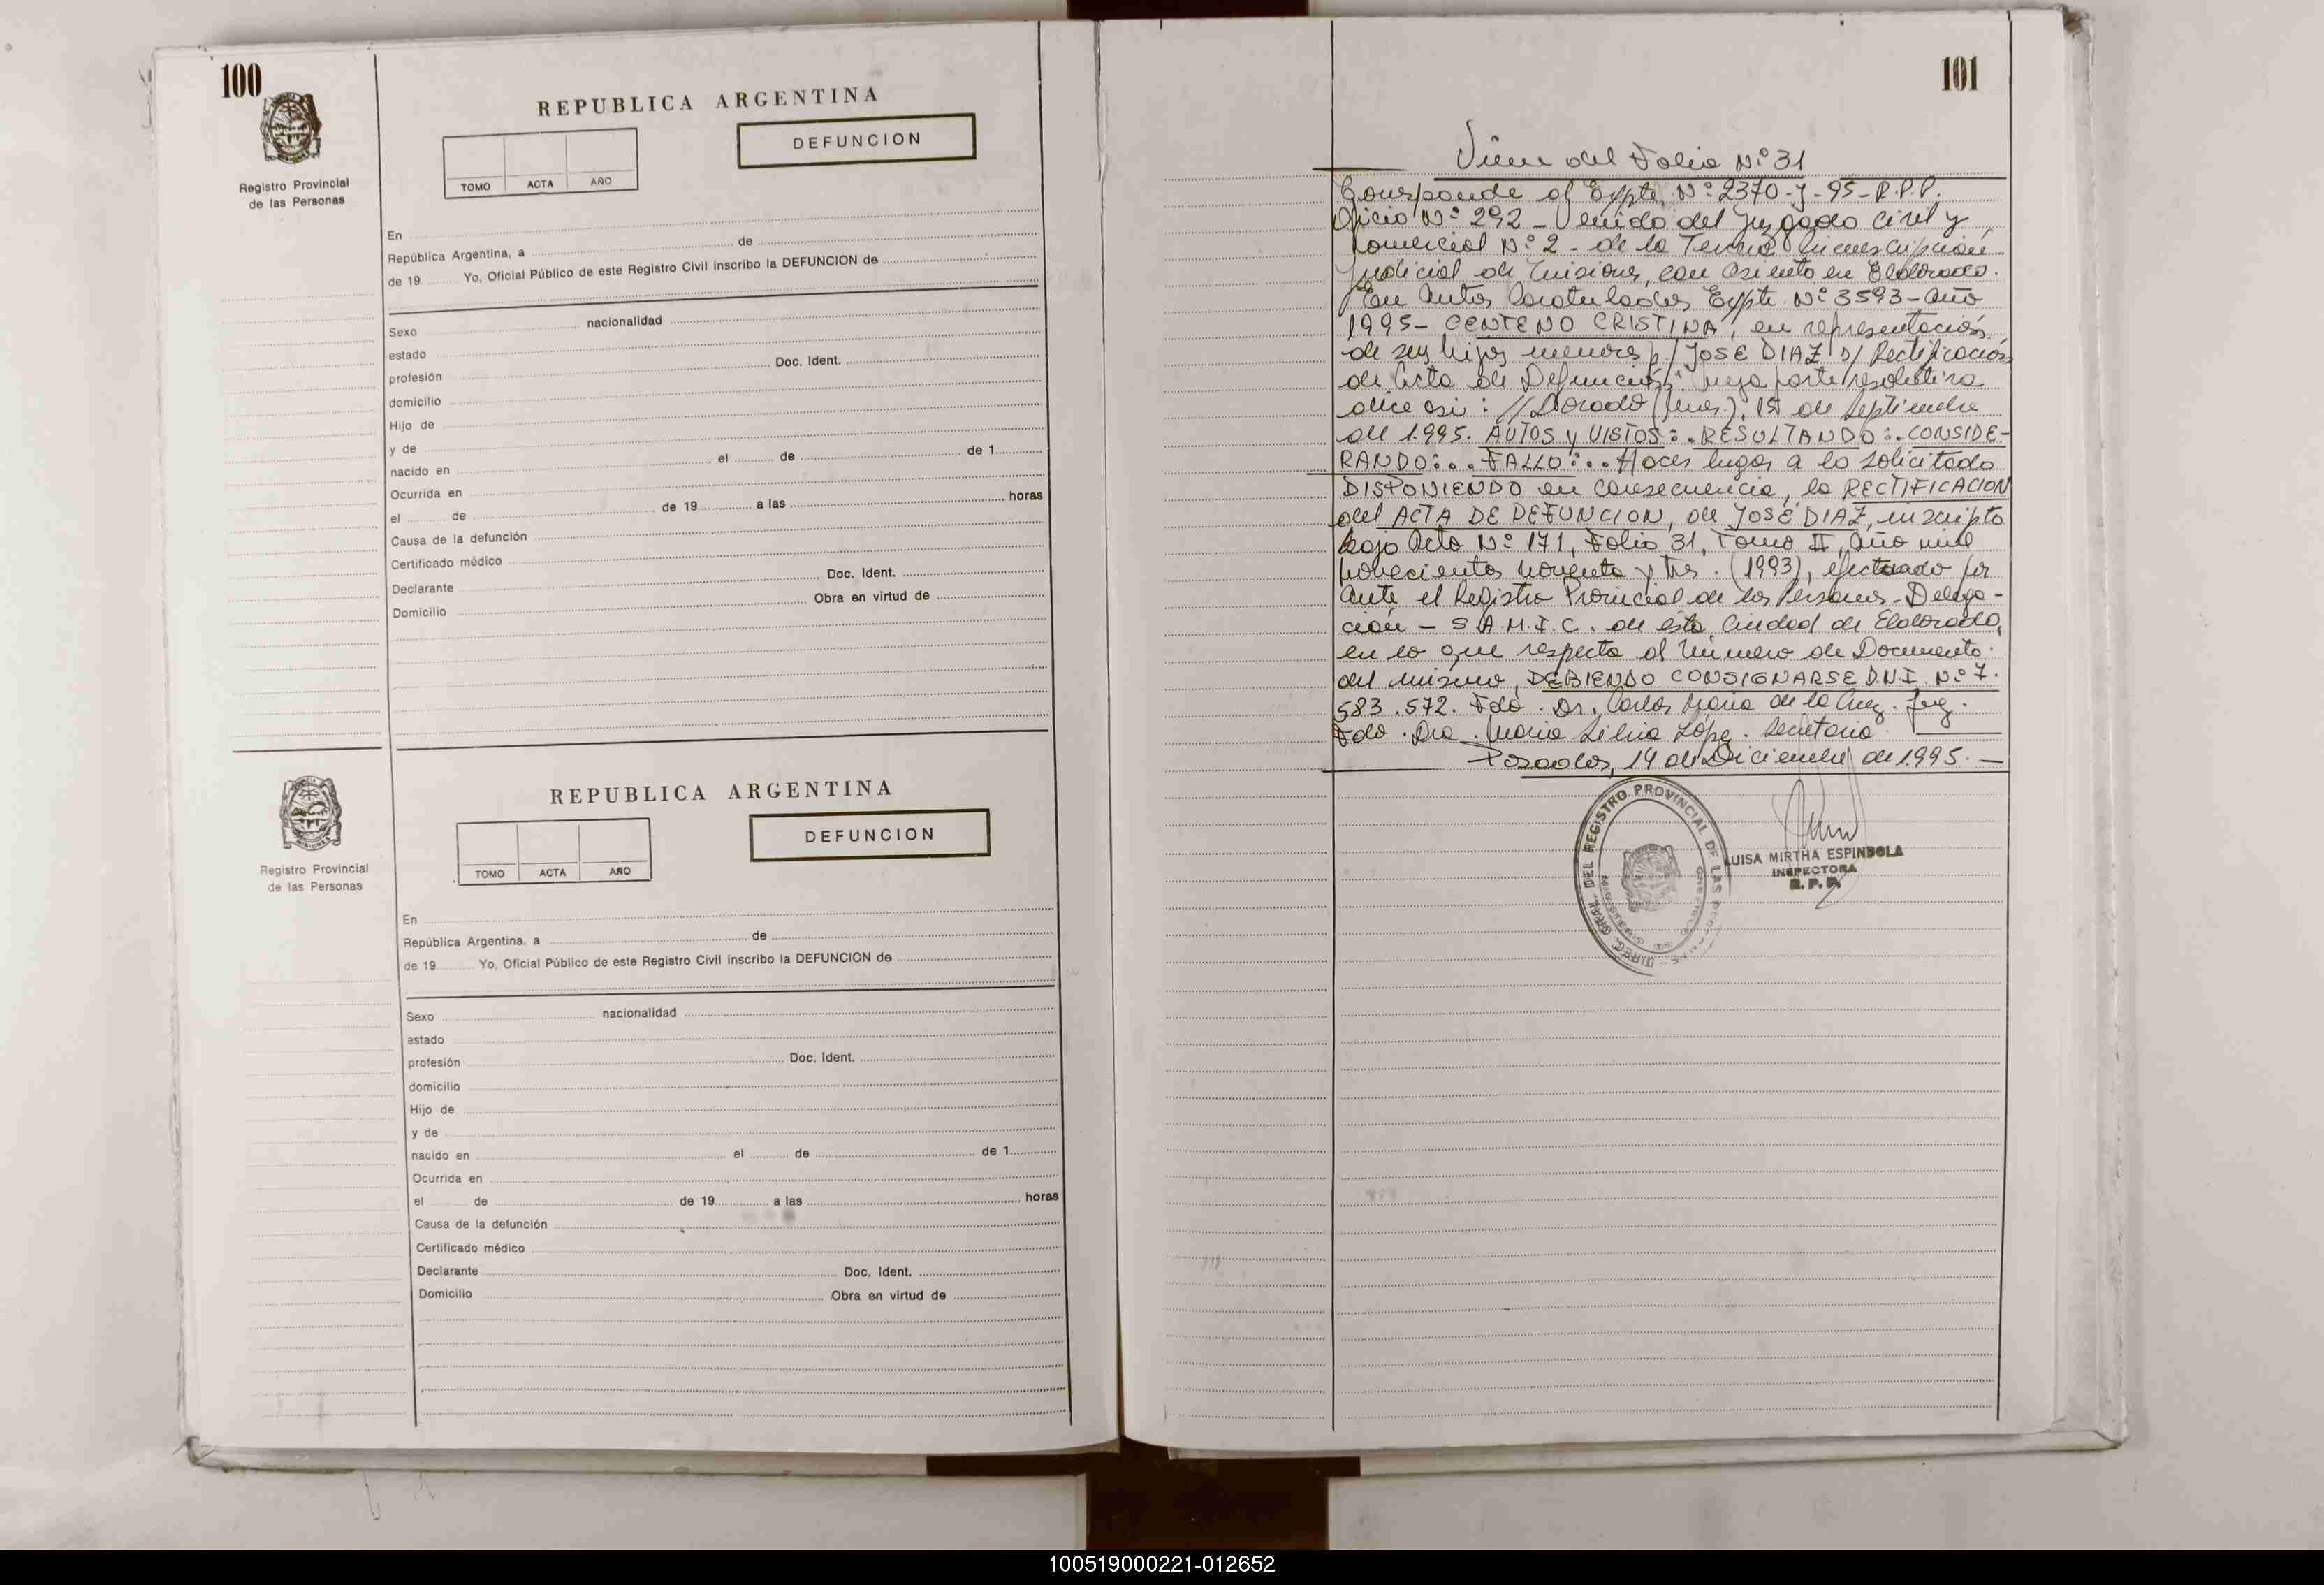 100
REPUBLICA ARGENTINA
DEFUNCION
TOMO ACTA AÑO
Registro Provincial
de las Personas
En
República Argentina, a de
de 19 Yo, Oficial Público de este Registro Civil inscribo la DEFUNCION de
Sexo nacionalidad
estado
profesión Doc. Ident.
domicilio
Hijo de
y de
nacido en el de de 1
Ocurrida en
el de de 19 a las horas
Causa de la defunción
Certificado médico
Declarante Doc. Ident.
Domicilio Obra en virtud de
REPUBLICA ARGENTINA
DEFUNCION
TOMO ACTA AÑO
Registro Provincial
de las Personas
En
República Argentina, a de
de 19 Yo, Oficial Público de este Registro Civil inscribo la DEFUNCION de
Sexo nacionalidad
estado
profesión Doc. Ident.
domicilio
Hijo de
y de
nacido en el de de 1
Ocurrida en
el de de 19 a las horas
Causa de la defunción
Certificado médico
Declarante Doc. Ident.
Domicilio Obra en virtud de
101
Viene del Folio Nº 31
Corresponde al Expte. Nº 2370-J-95-R.P.P.
Oficio Nº 292 - Venido del Juzgado Civil y
Comercial Nº 2 - de la Tercera Circunscripción
Judicial de Misiones, con asiento en Eldorado.
En Autos Caratulados Expte. Nº 3593 - año
1995 - CENTENO CRISTINA, en representación
de sus hijos menores p/ JOSE DIAZ s/ Rectificación
de Acta de Defunción". Cuya parte resolutiva
dice asi: //Dorado (Mnes.), de Septiembre
de 1.995. AUTOS y VISTOS:. RESULTANDO:. CONSIDE-
RANDO:.. FALLO:.. Hacer lugar a lo solicitado
DISPONIENDO en consecuencia, la RECTIFICACION
del ACTA DE DEFUNCION, de JOSÉ DIAZ, inscripto
bajo Acta Nº 171, Folio 31, Tomo II, año mil
novecientos noventa y tres. (1993), efectuado por
ante el Registro Provincial de las Personas - Delega-
ción - S.A.M.I.C. de ésta Ciudad de Eldorado,
en lo que respecta al número de Documento
del mismo, DEBIENDO CONSIGNARSE D.N.I. Nº 7.
583.572. Fdo. Dr. Carlos María de la Cruz. Juez.
Fdo. Dra. María Silvia López. Secretaria.
Posadas, 14 de Diciembre de 1.995.
DIREC. GRAL. DEL REGISTRO PROVINCIAL DE LAS PERSONAS
LUISA MIRTHA ESPINDOLA
INSPECTORA
R. P. P.
100519000221-012652